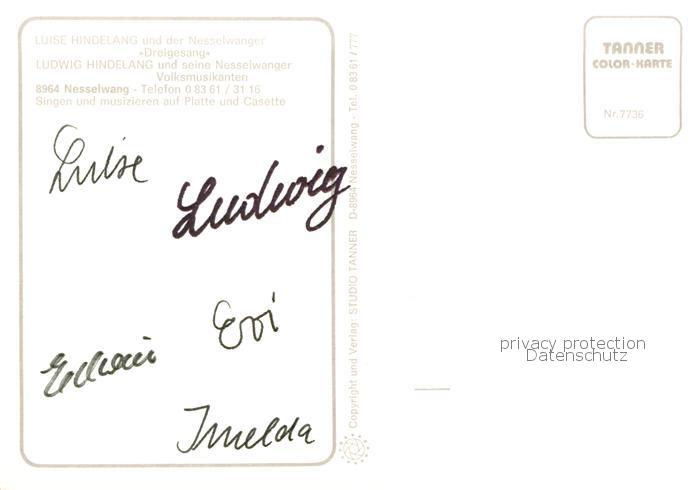 LUISE HINDELANG und der Nesselwanger
»Dreigesang«
LUDWIG HINDELANG und seine Nesselwanger
Volksmusikanten
8964 Nesselwang - Telefon 0 83 61 / 31 16
Singen und musizieren auf Platte und Casette
Luise
Ludwig
Evi
Imelda
Copyright und Verlag: STUDIO TANNER D-8964 Nesselwang - Tel. 0 83 61 / 777
TANNER
COLOR-KARTE
Nr. 7736
privacy protection
Datenschutz